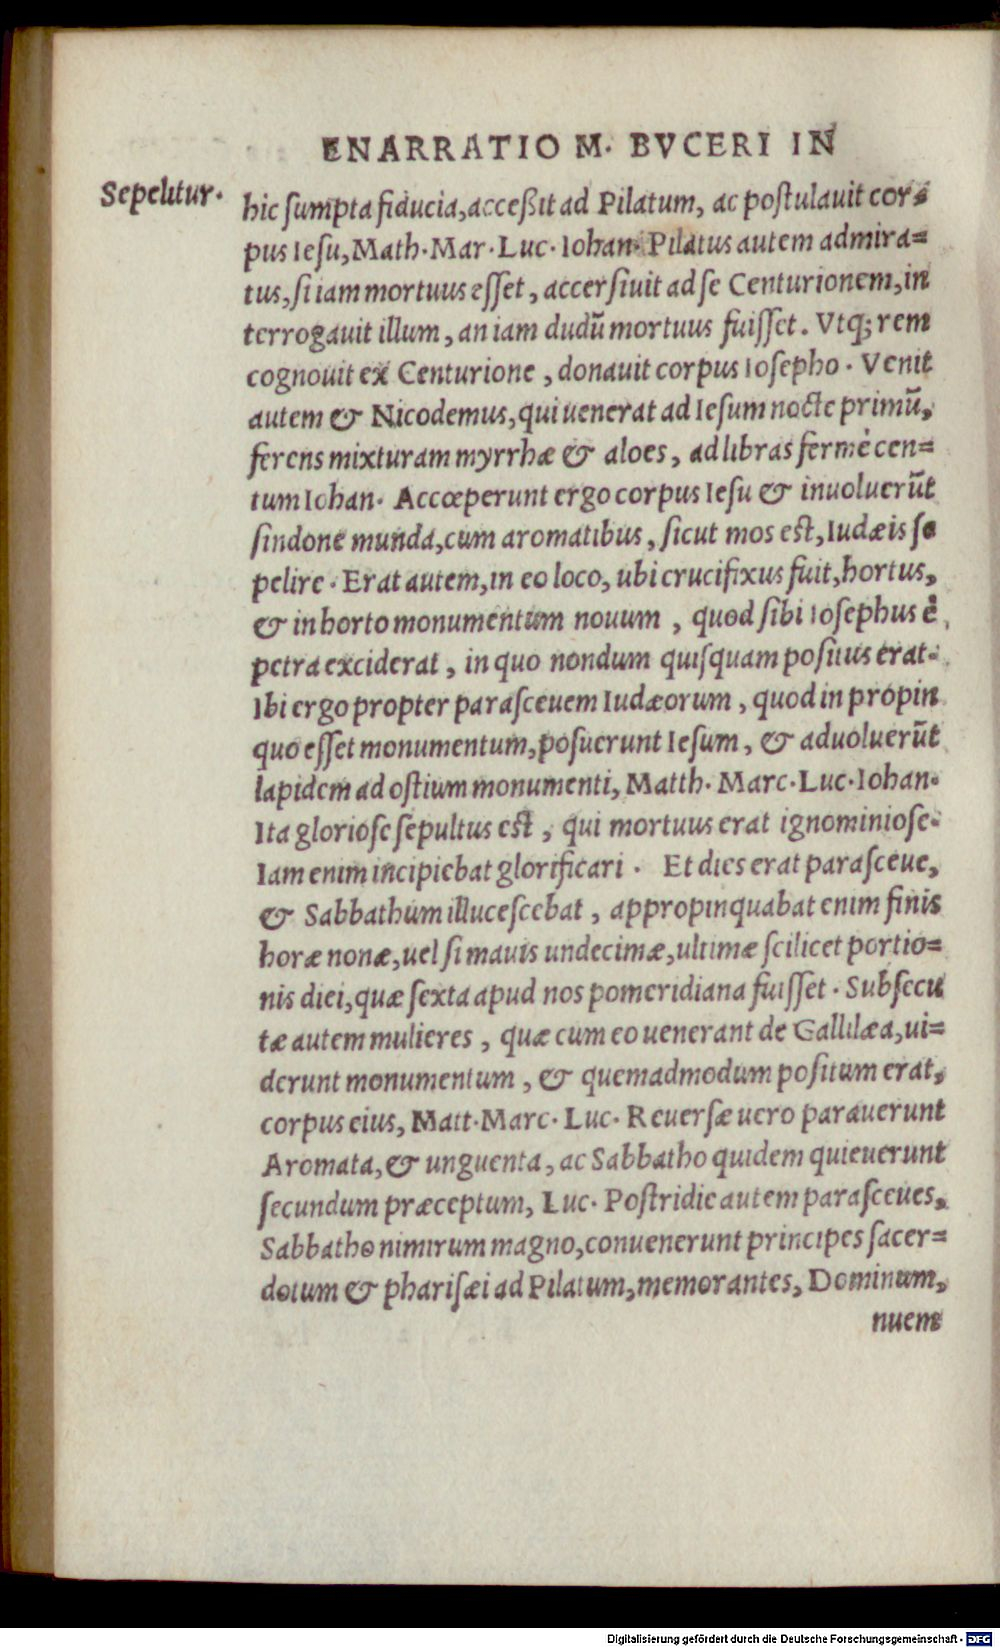 ENARRATIO M. BVCERI IN
Sepelitur.
hic ſumpta fiducia, acceßit ad Pilatum, ac poſtulauit cor=
pus Ieſu, Math. Mar. Luc. Iohan. Pilatus autem admira=
tus, ſi iam mortuus eſſet, accerſiuit ad ſe Centurionem, in
terrogauit illum, an iam dudū mortuus fuiſſet. Vtq; rem
cognouit ex Centurione, donauit corpus Ioſepho. Venit
autem & Nicodemus, qui uenerat ad Ieſum nocte primū,
ferens mixturam myrrhæ & aloes, ad libras fermè cen=
tum Iohan. Accœperunt ergo corpus Ieſu & inuoluerūt
ſindone munda, cum aromatibus, ſicut mos eſt, Iudæis ſe
pelire. Erat autem, in eo loco, ubi crucifixus fuit, hortus,
& in horto monumentum nouum, quod ſibi Ioſephus è
petra exciderat, in quo nondum quiſquam poſitus erat.
Ibi ergo propter paraſceuem Iudæorum, quod in propin
quo eſſet monumentum, poſuerunt Ieſum, & aduoluerūt
lapidem ad oſtium monumenti, Matth. Marc. Luc. Iohan.
Ita glorioſe ſepultus eſt, qui mortuus erat ignominioſe.
Iam enim incipiebat glorificari. Et dies erat paraſceue,
& Sabbathum illuceſcebat, appropinquabat enim finis
horæ nonæ, uel ſi mauis undecimæ, ultimæ ſcilicet portio=
nis diei, quæ ſexta apud nos pomeridiana fuiſſet. Subſecu
tæ autem mulieres, quæ cum eo uenerant de Gallilæa, ui=
derunt monumentum, & quemadmodum poſitum erat,
corpus eius, Matt. Marc. Luc. Reuerſæ uero parauerunt
Aromata, & unguenta, ac Sabbatho quidem quieuerunt
ſecundum præceptum, Luc. Poſtridie autem paraſceues,
Sabbatho nimirum magno, conuenerunt principes ſacer=
dotum & phariſæi ad Pilatum, memorantes, Dominum,
nuem
Digitalisierung gefördert durch die Deutsche Forschungsgemeinschaft - DFG